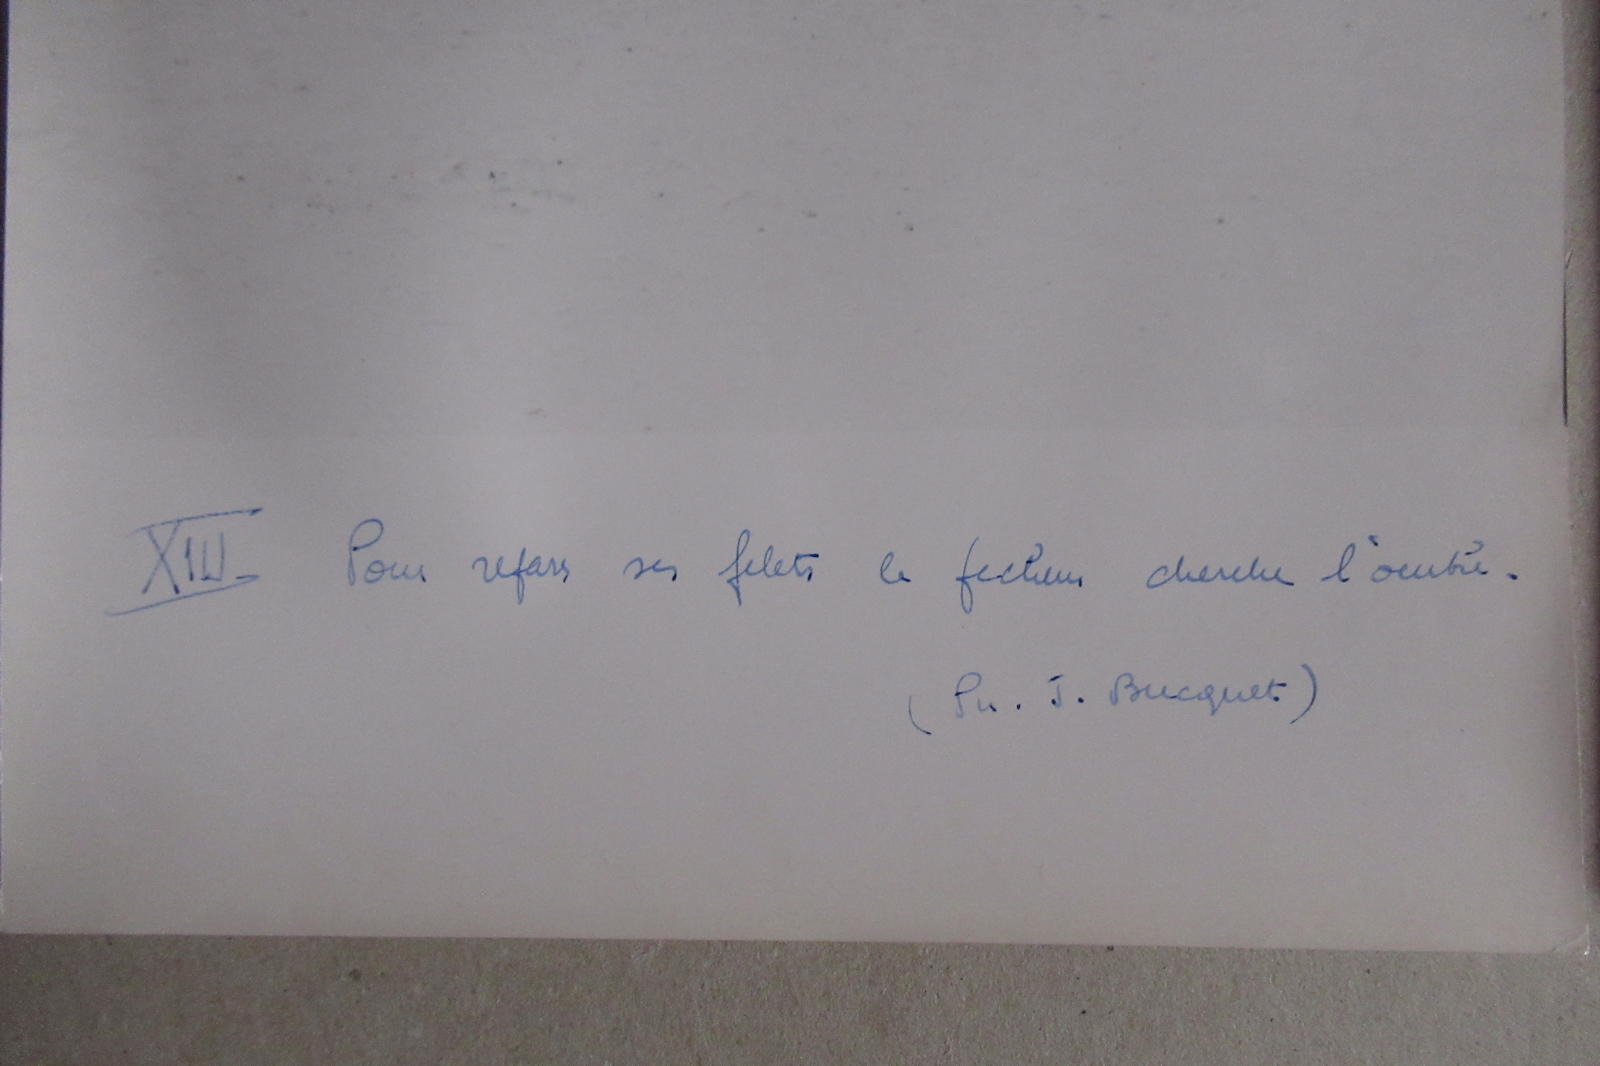 XIII Pour refaire ses filets le pêcheur cherche l'ombre.
(Ph. J. Bucquet)